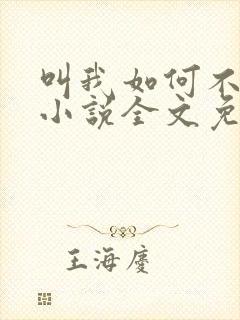 叫我如何不
小说全文免
王海庆